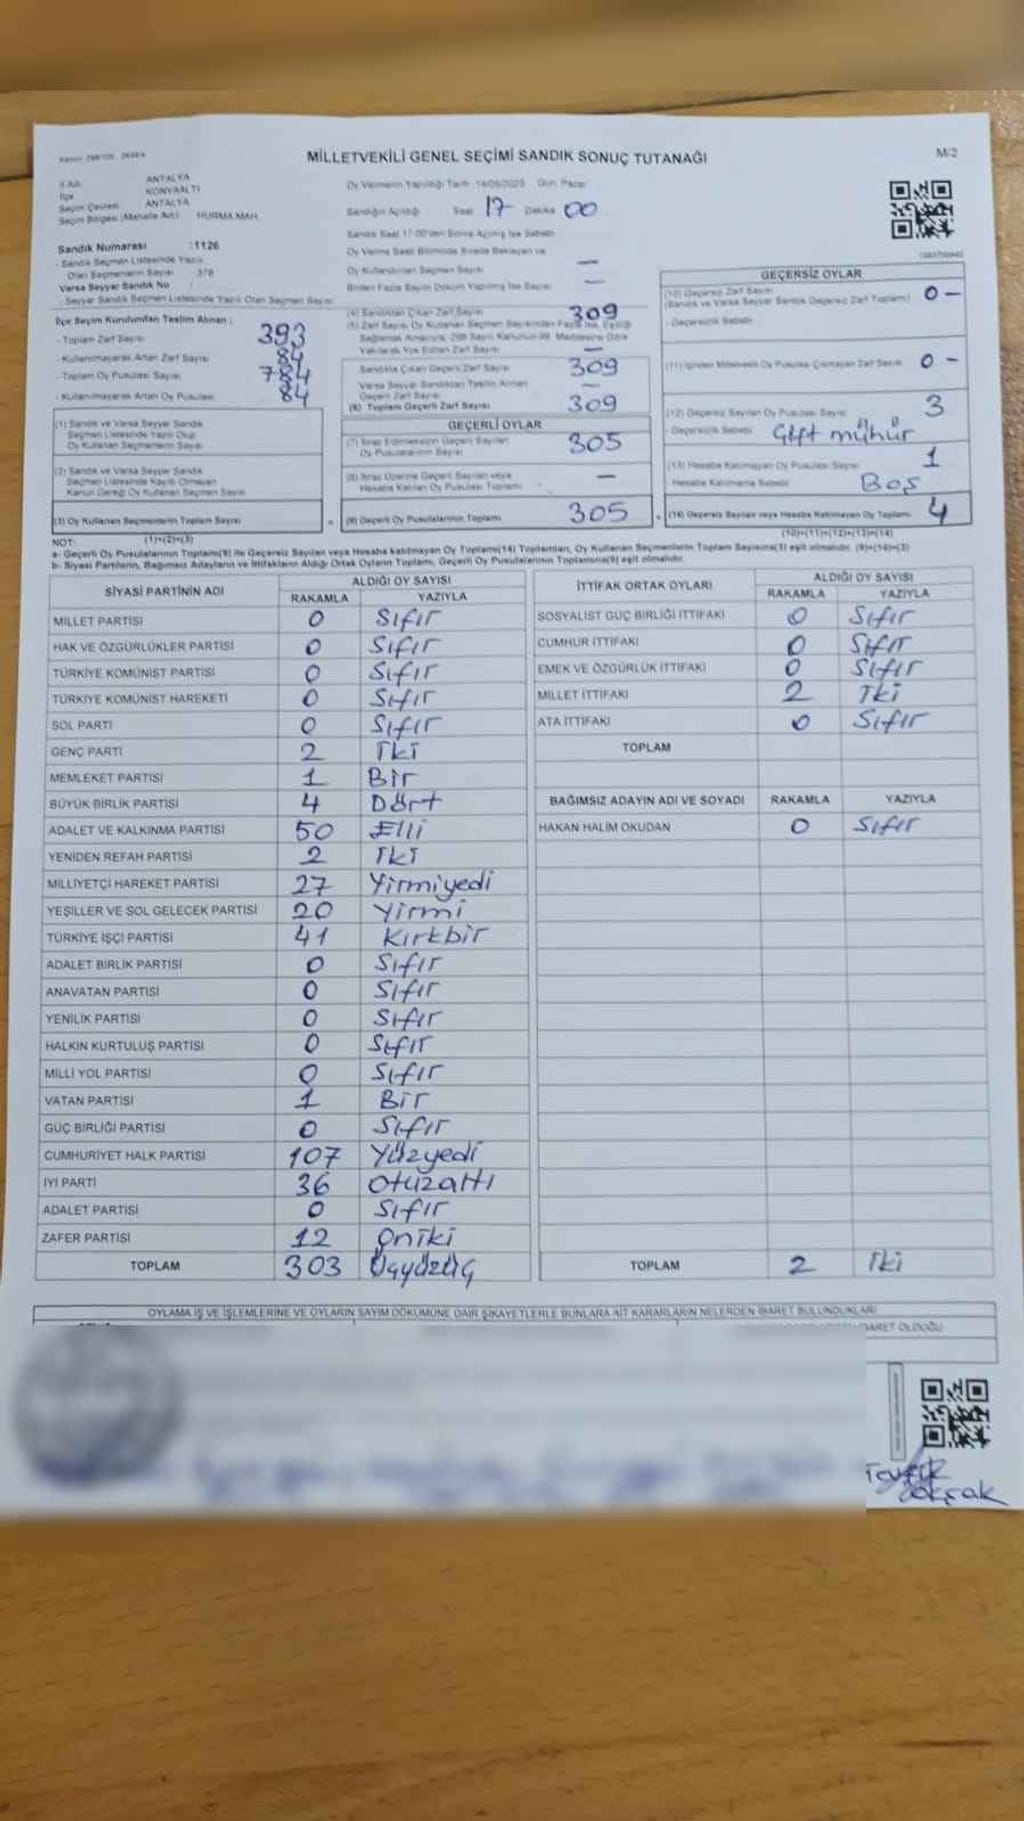 MİLLETVEKİLİ GENEL SEÇİMİ SANDIK SONUÇ TUTANAĞI
M/2
İl Adı ANTALYA
İlçe KONYAALTI
Seçim Çevresi ANTALYA
Seçim Bölgesi (Mahalle Adı) HURMA MAH.
Sandık Numarası :1126
- Sandık Seçmen Listesinde Yazılı
Olan Seçmenlerin Sayısı 378
Varsa Seyyar Sandık No :
- Seyyar Sandık Seçmen Listesinde Yazılı Olan Seçmen Sayısı
İlçe Seçim Kurulundan Teslim Alınan :
- Toplam Zarf Sayısı 393
- Kullanılmayarak Artan Zarf Sayısı 84
- Toplam Oy Pusulası Sayısı
- Kullanılmayarak Artan Oy Pusulası 84
(1) Sandık ve Varsa Seyyar Sandık
Seçmen Listesinde Yazılı Olup
Oy Kullanan Seçmenlerin Sayısı
(2) Sandık ve Varsa Seyyar Sandık
Seçmen Listesinde Kayıtlı Olmayan
Kanun Gereği Oy Kullanan Seçmen Sayısı
(3) Oy Kullanan Seçmenlerin Toplam Sayısı
(1)+(2)=(3)
Oy Vermenin Yapıldığı Tarih : 14/05/2023 Gün: Pazar
Sandığın Açıldığı Saat 17 Dakika 00
Sandık Saat 17:00'den Sonra Açılmış İse Sebebi
Oy Verme Saati Bitiminde Sırada Bekleyen ve
Oy Kullandırılan Seçmen Sayısı —
Birden Fazla Sayım Döküm Yapılmış İse Sayısı —
(4) Sandıktan Çıkan Zarf Sayısı 309
(5) Zarf Sayısı Oy Kullanan Seçmen Sayısından Fazla İse, Eşitliği
Sağlamak Amacıyla, 298 Sayılı Kanunun 98. Maddesine Göre
Yakılarak Yok Edilen Zarf Sayısı —
Sandıkta Çıkan Geçerli Zarf Sayısı 309
Varsa Seyyar Sandıktan Teslim Alınan
Geçerli Zarf Sayısı —
(6) Toplam Geçerli Zarf Sayısı 309
GEÇERLİ OYLAR
(7) İtiraz Edilmeksizin Geçerli Sayılan
Oy Pusulalarının Sayısı 305
(8) İtiraz Üzerine Geçerli Sayılan veya
Hesaba Katılan Oy Pusulası Toplamı —
(9) Geçerli Oy Pusulalarının Toplamı 305
GEÇERSİZ OYLAR
(10) Geçersiz Zarf Sayısı
(Sandık ve Varsa Seyyar Sandık Geçersiz Zarf Toplamı) 0 -
- Geçersizlik Sebebi
(11) İçinden Milletvekili Oy Pusulası Çıkmayan Zarf Sayısı 0 -
(12) Geçersiz Sayılan Oy Pusulası Sayısı 3
- Geçersizlik Sebebi Çift mühür
(13) Hesaba Katılmayan Oy Pusulası Sayısı 1
- Hesaba Katılmama Sebebi Boş
(14) Geçersiz Sayılan veya Hesaba Katılmayan Oy Toplamı 4
(10)+(11)+(12)+(13)=(14)
NOT:
a- Geçerli Oy Pusulalarının Toplamı(9) ile Geçersiz Sayılan veya Hesaba katılmayan Oy Toplamı(14) Toplamları, Oy Kullanan Seçmenlerin Toplam Sayısına(3) eşit olmalıdır. (9)+(14)=(3)
b- Siyasi Partilerin, Bağımsız Adayların ve İttifakların Aldığı Ortak Oyların Toplamı, Geçerli Oy Pusulalarının Toplamına(9) eşit olmalıdır.
SİYASİ PARTİNİN ADI ALDIĞI OY SAYISI
RAKAMLA YAZIYLA
MİLLET PARTİSİ 0 Sıfır
HAK VE ÖZGÜRLÜKLER PARTİSİ 0 Sıfır
TÜRKİYE KOMÜNİST PARTİSİ 0 Sıfır
TÜRKİYE KOMÜNİST HAREKETİ 0 Sıfır
SOL PARTİ 0 Sıfır
GENÇ PARTİ 2 İki
MEMLEKET PARTİSİ 1 Bir
BÜYÜK BİRLİK PARTİSİ 4 Dört
ADALET VE KALKINMA PARTİSİ 50 Elli
YENİDEN REFAH PARTİSİ 2 İki
MİLLİYETÇİ HAREKET PARTİSİ 27 Yirmiyedi
YEŞİLLER VE SOL GELECEK PARTİSİ 20 Yirmi
TÜRKİYE İŞÇİ PARTİSİ 41 Kırkbir
ADALET BİRLİK PARTİSİ 0 Sıfır
ANAVATAN PARTİSİ 0 Sıfır
YENİLİK PARTİSİ 0 Sıfır
HALKIN KURTULUŞ PARTİSİ 0 Sıfır
MİLLİ YOL PARTİSİ 0 Sıfır
VATAN PARTİSİ 1 Bir
GÜÇ BİRLİĞİ PARTİSİ 0 Sıfır
CUMHURİYET HALK PARTİSİ 107 Yüzyedi
İYİ PARTİ 36 Otuzaltı
ADALET PARTİSİ 0 Sıfır
ZAFER PARTİSİ 12 Oniki
TOPLAM 303 Üçyüzüç
İTTİFAK ORTAK OYLARI ALDIĞI OY SAYISI
RAKAMLA YAZIYLA
SOSYALİST GÜÇ BİRLİĞİ İTTİFAKI 0 Sıfır
CUMHUR İTTİFAKI 0 Sıfır
EMEK VE ÖZGÜRLÜK İTTİFAKI 0 Sıfır
MİLLET İTTİFAKI 2 İki
ATA İTTİFAKI 0 Sıfır
TOPLAM
BAĞIMSIZ ADAYIN ADI VE SOYADI RAKAMLA YAZIYLA
HAKAN HALİM OKUDAN 0 Sıfır
TOPLAM 2 İki
OYLAMA İŞ VE İŞLEMLERİNE VE OYLARIN SAYIM DÖKÜMÜNE DAİR ŞİKAYETLERLE BUNLARA AİT KARARLARIN NELERDEN İBARET BULUNDUKLARI
OLDUĞU